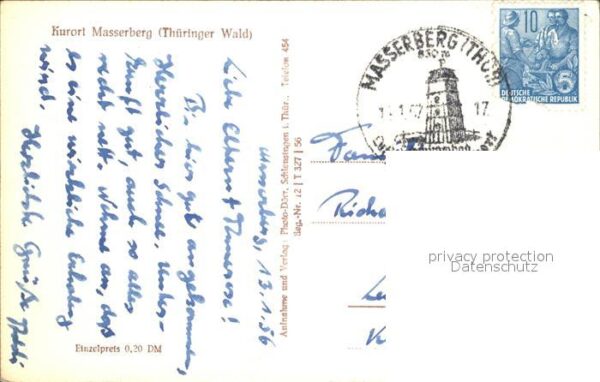 Kurort Masserberg (Thüringer Wald)
Masserberg, 13.1.56
Liebe Eltern +
Bin hier gut angekommen,
Herrlicher Schnee, Unter-
kunft gut, auch so alles
recht nett. Nehme an, daß
es eine wirkliche Erholung
wird. Herzliche Grüße
Einzelpreis 0,20 DM
Aufnahme und Verlag: Photo-Dörr, Schleusingen i. Thür., Telefon 454
Reg.-Nr. 12 | T 327 | 56
MASSERBERG (THÜR)
17
10
DEUTSCHE
DEMOKRATISCHE REPUBLIK
Fam
Richa
privacy protection
Datenschutz